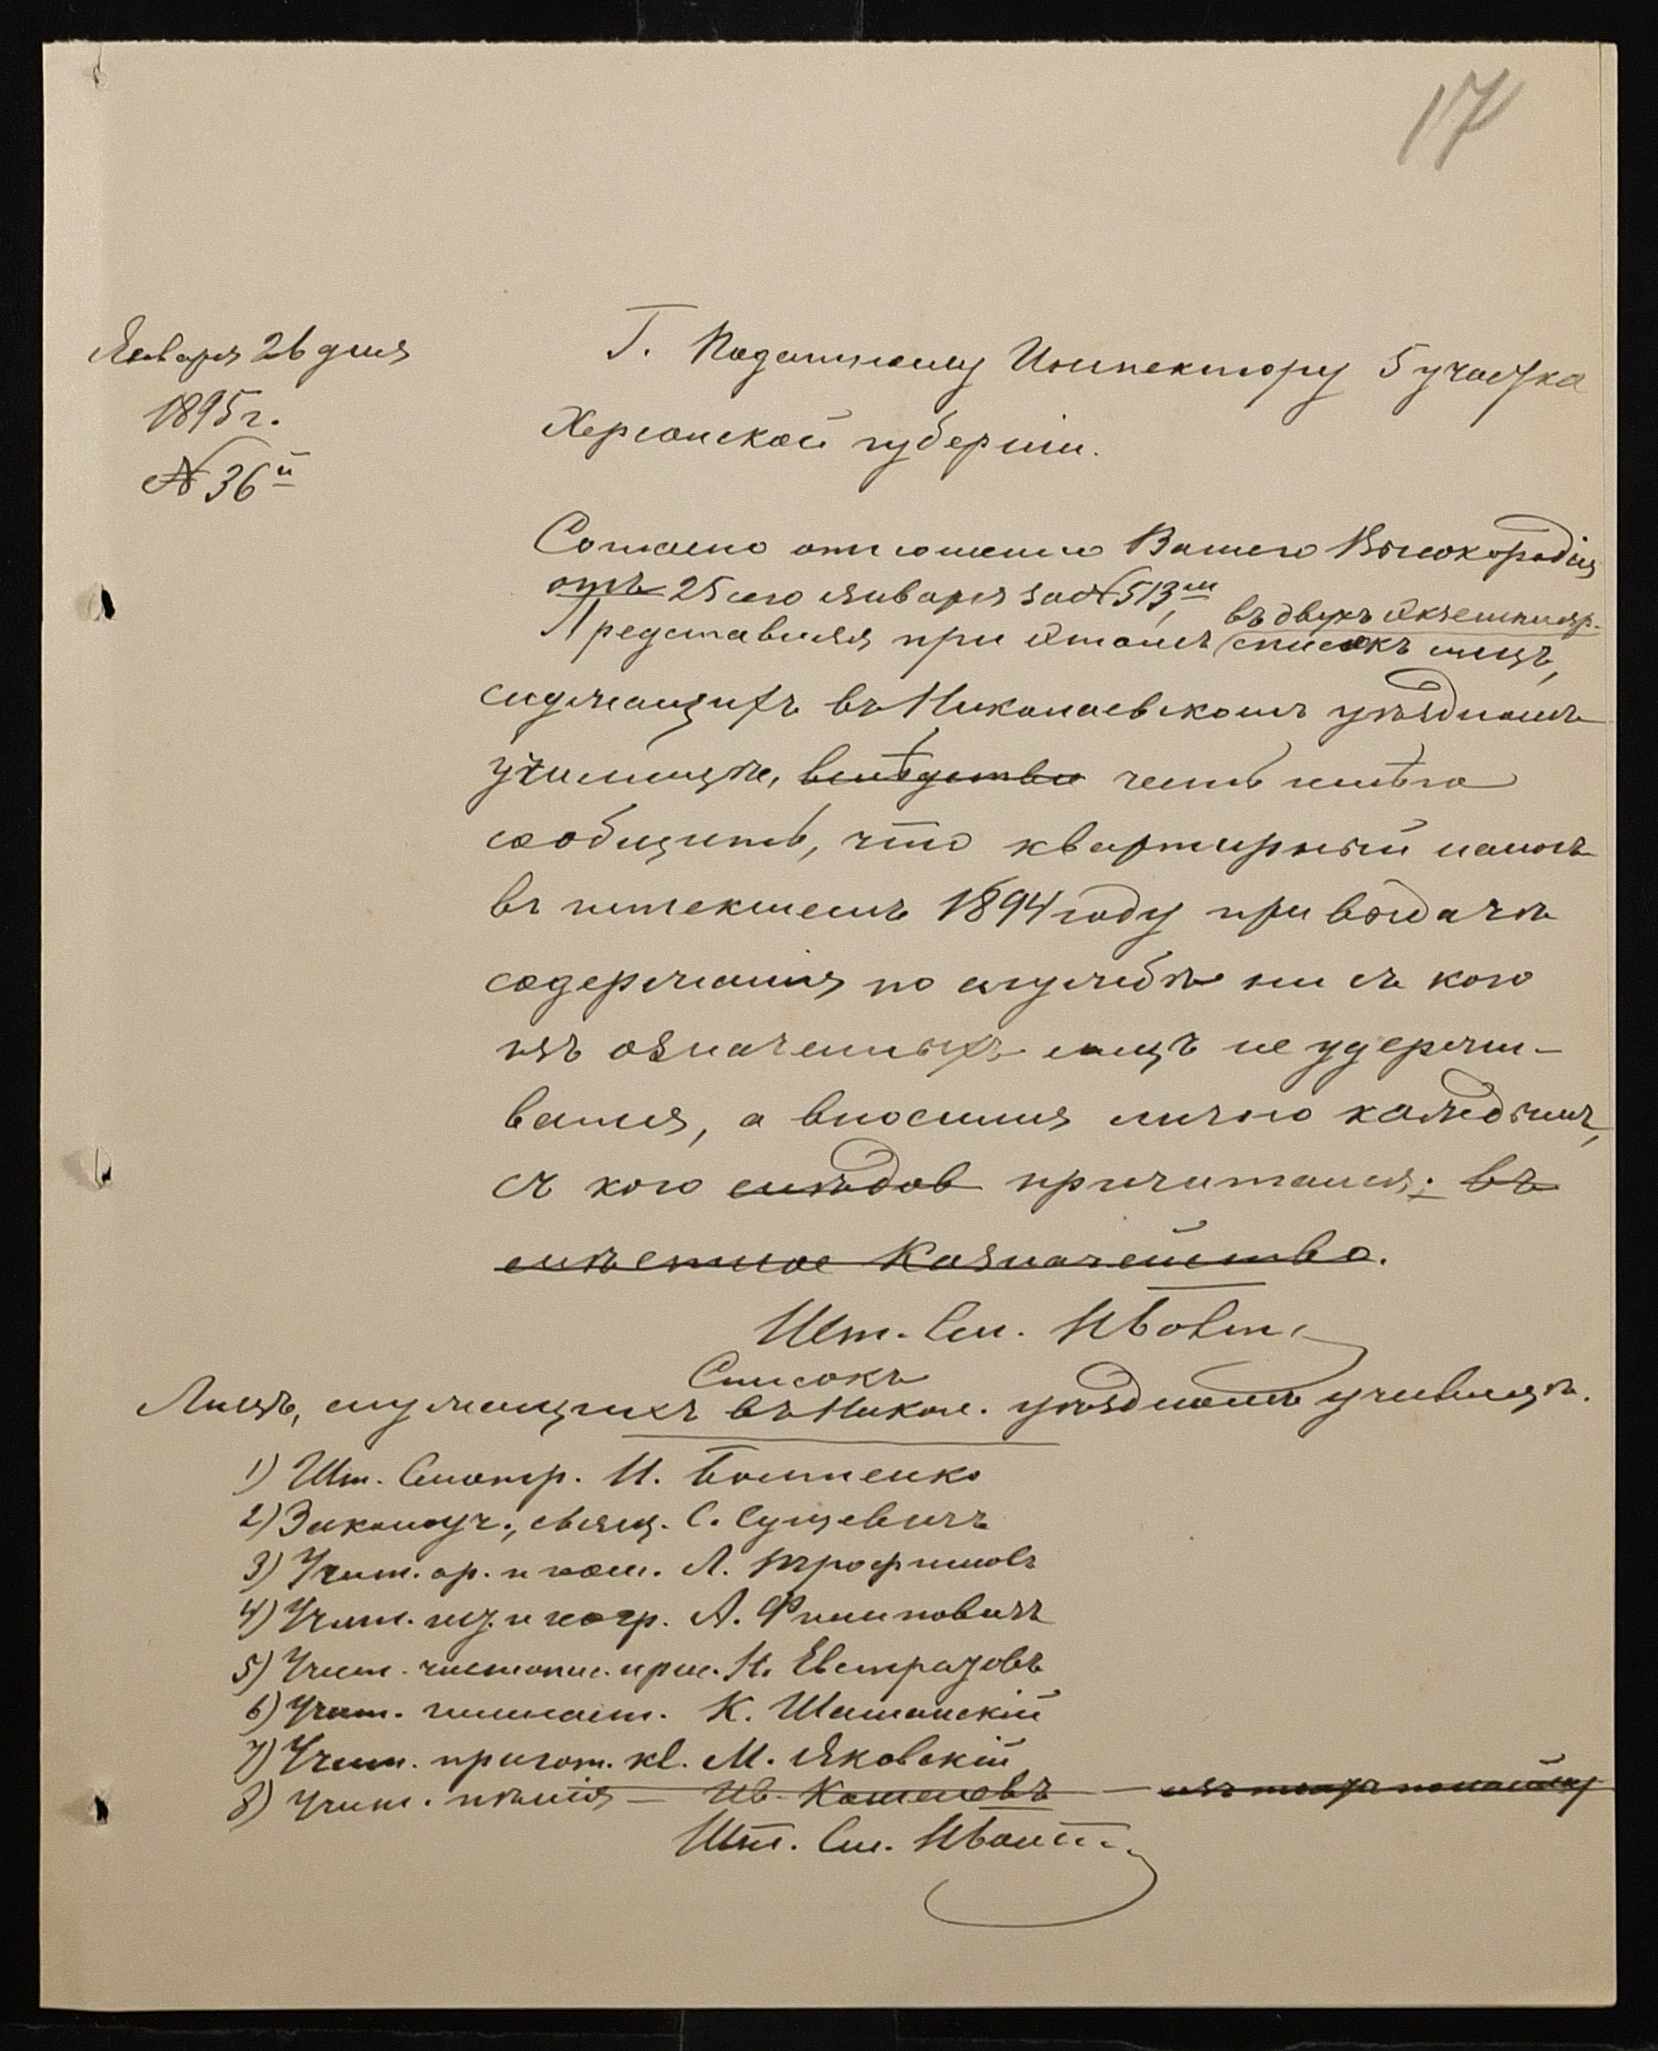 17
Января 26 дня
1895 г.
№ 36й
Г. Податному Инспектору 5 участка
Херсонской губернiи.
Согласно отношенiю Вашего Высокородiя
отъ 25 сего января за № 513м,
въ двухъ экземпляр.
Представляя при этомъ списокъ лицъ,
служащихъ въ Николаевскомъ уѣздномъ
училищѣ, вслѣдствiе честь имѣю
сообщить, что квартирный налогъ
въ истекшемъ 1894 году при выдачѣ
содержанiя по службѣ ни съ кого
изъ означенныхъ лицъ не удержи-
вался, а вносился лично каждымъ,
съ кого слѣдов причитался. въ
мѣстное Казначейство.
Шт. См.
Списокъ
Лицъ, служащихъ въ Никол. уѣздномъ училищѣ.
1) Шт. Смотр. И. Болтенко
2) Законоуч., свящ. С. Сущевичъ
3) Учит. ар. и геом. Л. Трофимовъ
4) Учит. ист. и геогр. А. Филиповичъ
5) Учит. чистопис. и рис. Н. Евстратовъ
6) Учит. гимнаст. К. Шаманскiй
7) Учит. пригот. кл. М. Яковскiй
8) Учит. пѣнiя – Ив. Кошелевъ –
Шт. См.